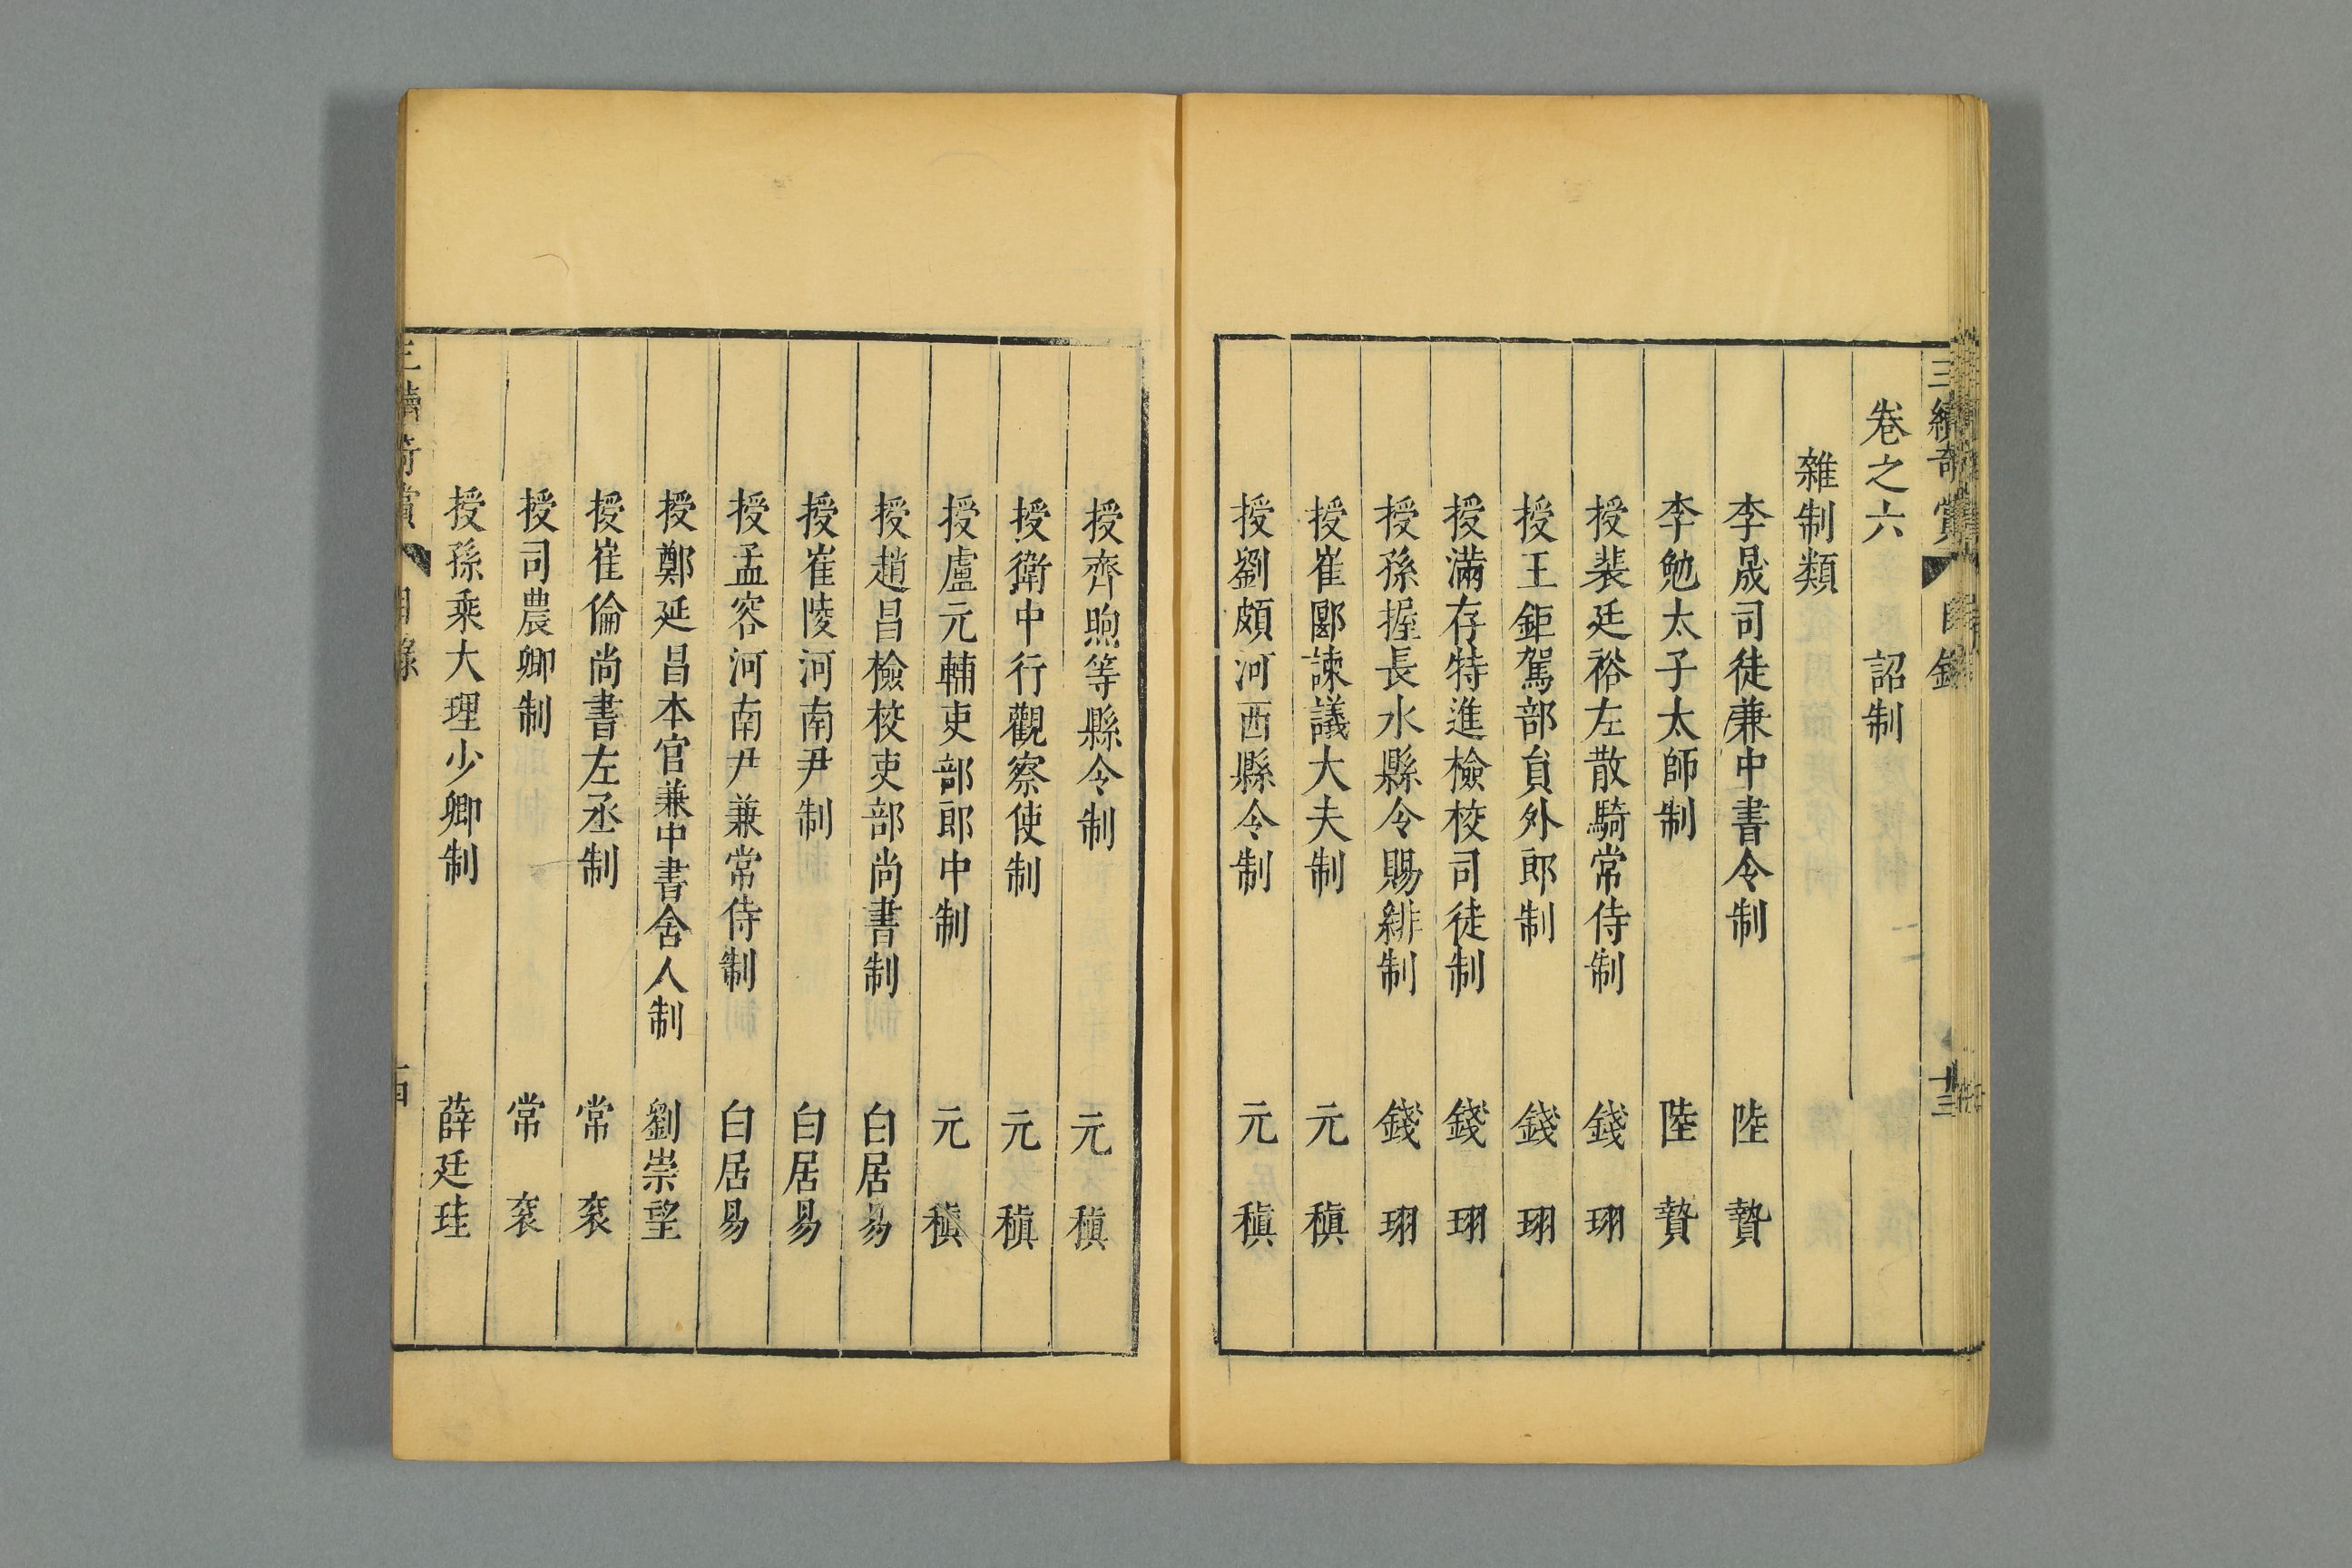 三續奇賞 目錄 十三
卷之六 詔制
雜制類
李晟司徒兼中書令制 陸贄
李勉太子太師制 陸贄
授裴廷裕左散騎常侍制 錢珝
授王鉅駕部員外郎制 錢珝
授滿存特進檢校司徒制 錢珝
授孫握長水縣令賜緋制 錢珝
授崔郾諫議大夫制 元稹
授劉頗河西縣令制 元稹
授齊煦等縣令制 元稹
授衛中行觀察使制 元稹
授盧元輔吏部郎中制 元稹
授趙昌檢校吏部尚書制 白居易
授崔陵河南尹制 白居易
授孟容河南尹兼常侍制 白居易
授鄭延昌本官兼中書舍人制 劉崇望
授崔倫尚書左丞制 常袞
授司農卿制 常袞
授孫乘大理少卿制 薛廷珪
三續奇賞 目錄